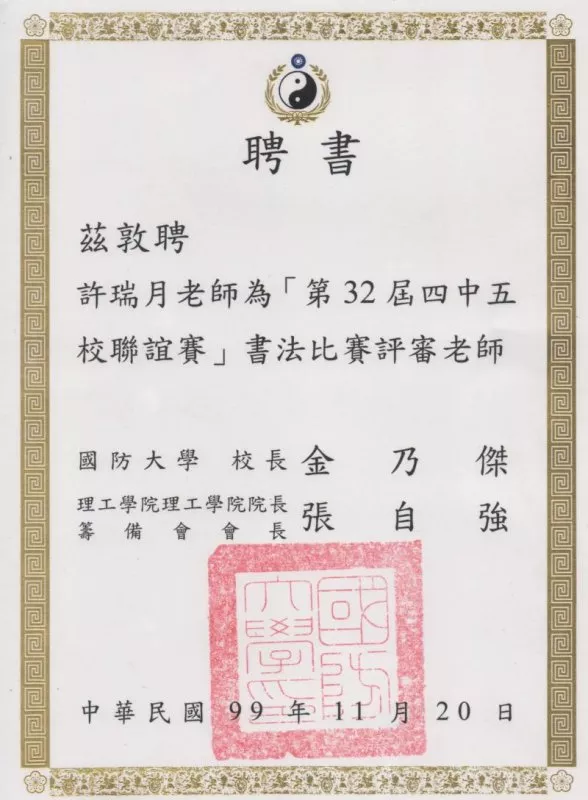 聘書
茲敦聘
許瑞月老師為「第32屆四中五
校聯誼賽」書法比賽評審老師
國防大學 校長 金乃傑
理工學院理工學院院長
籌備會會長 張自強
國防大學印
中華民國 99 年 11 月 20 日